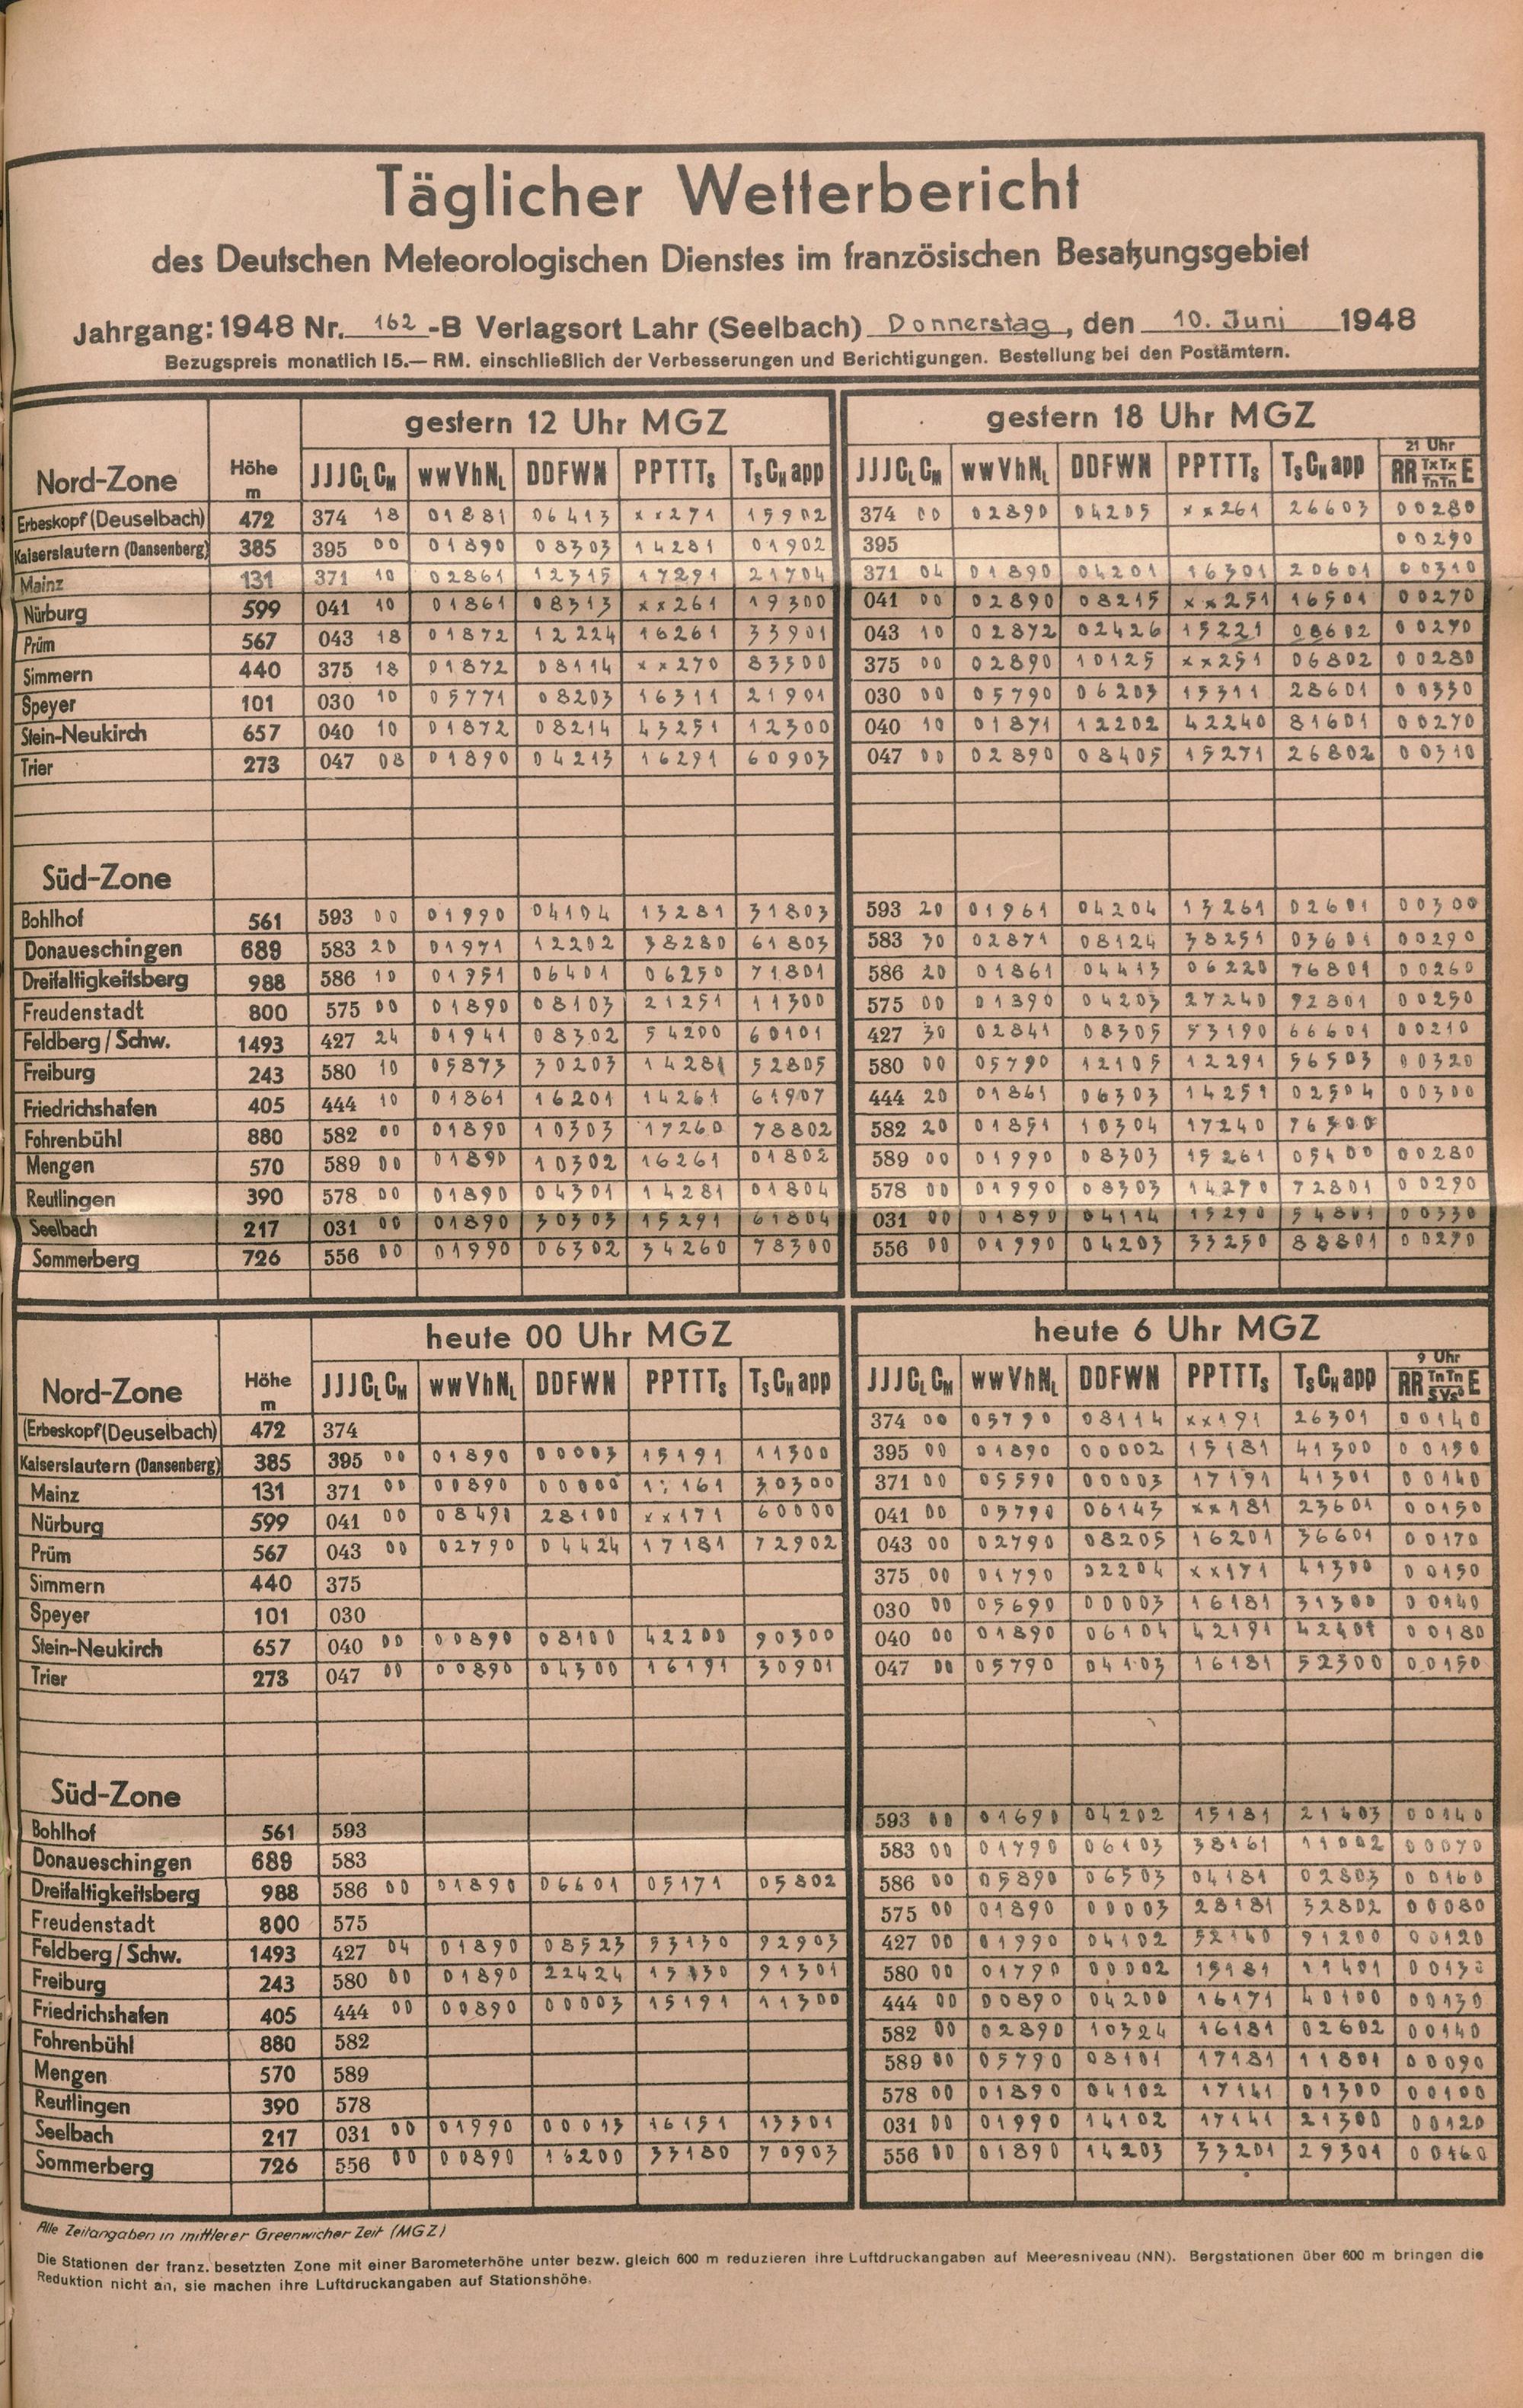 Täglicher Wetterbericht
des Deutschen Meteorologischen Dienstes im französischen Besatzungsgebiet
Jahrgang: 1948 Nr. 162 -B Verlagsort Lahr (Seelbach) Donnerstag, den 10. Juni 1948
Bezugspreis monatlich 15.— RM. einschließlich der Verbesserungen und Berichtigungen. Bestellung bei den Postämtern.
Nord-Zone Höhe m gestern 12 Uhr MGZ gestern 18 Uhr MGZ
JJJCLCM wwVhNL DDFWN PPTTTs TsCHapp JJJCLCM wwVhNL DDFWN PPTTTs TsCHapp 21 Uhr RR TxTx TnTn E
Erbeskopf (Deuselbach) 472 374 18 01881 06413 xx271 15902 374 00 02890 04205 xx261 26603 00280
Kaiserslautern (Dansenberg) 385 395 00 01890 08303 14281 01902 395 00290
Mainz 131 371 10 02861 12315 17291 21704 371 04 01890 04201 16301 20601 00310
Nürburg 599 041 10 01861 08313 xx261 19300 041 00 02890 08215 xx251 16501 00270
Prüm 567 043 18 01872 12224 16261 33901 043 10 02872 02426 15221 08602 00270
Simmern 440 375 18 01872 08114 xx270 83300 375 00 02890 10125 xx251 06802 00280
Speyer 101 030 10 05771 08203 16311 21901 030 00 05790 06203 15311 28601 00330
Stein-Neukirch 657 040 10 01872 08214 43251 12300 040 10 01871 12202 42240 81601 00270
Trier 273 047 08 01890 04213 16291 60903 047 00 02890 08405 15271 26802 00310
Süd-Zone
Bohlhof 561 593 00 01990 04104 13281 31803 593 20 01961 04204 13261 02601 00300
Donaueschingen 689 583 20 01971 12202 38280 61803 583 30 02871 08124 38251 03601 00290
Dreifaltigkeitsberg 988 586 10 01951 06401 06250 71801 586 20 01861 04413 06220 76801 00260
Freudenstadt 800 575 00 01890 08103 21251 11300 575 00 01890 04203 27240 92801 00250
Feldberg / Schw. 1493 427 24 01941 08302 54200 60101 427 30 02841 08305 53190 66601 00210
Freiburg 243 580 10 05873 30203 14281 52805 580 00 05790 12105 12291 56503 00320
Friedrichshafen 405 444 10 01861 16201 14261 61907 444 20 01861 06303 14251 02504 00300
Fohrenbühl 880 582 00 01890 10303 17260 78802 582 20 01851 10304 17240 76300
Mengen 570 589 00 01890 10302 16261 01802 589 00 01990 08303 15261 05400 00280
Reutlingen 390 578 00 01890 04301 14281 01804 578 00 01990 08303 14270 72801 00290
Seelbach 217 031 00 01890 30303 15291 61804 031 00 01890 04114 15290 54801 00330
Sommerberg 726 556 00 01990 06302 34260 78300 556 00 01990 04203 33250 88801 00270
Nord-Zone Höhe m heute 00 Uhr MGZ heute 6 Uhr MGZ
JJJCLCM wwVhNL DDFWN PPTTTs TsCHapp JJJCLCM wwVhNL DDFWN PPTTTs TsCHapp 9 Uhr RR TnTn E
(Erbeskopf (Deuselbach) 472 374 374 00 05790 08114 xx191 26301 00140
Kaiserslautern (Dansenberg) 385 395 00 01890 00003 15191 11300 395 00 01890 00002 15181 41300 00150
Mainz 131 371 00 00890 00000 30300 371 00 05590 00003 17191 41301 00140
Nürburg 599 041 00 08490 28100 xx171 60000 041 00 05790 06143 xx181 23601 00150
Prüm 567 043 00 02790 04424 17181 72902 043 00 02790 08205 16201 36601 00170
Simmern 440 375 375 00 01790 02204 xx171 41300 00150
Speyer 101 030 030 00 05690 00003 16181 31300 00140
Stein-Neukirch 657 040 00 00890 08100 42200 90300 040 00 01890 06104 42191 42401 00180
Trier 273 047 00 00890 04300 16191 30901 047 00 05790 04103 16181 52300 00150
Süd-Zone
Bohlhof 561 593 593 00 01690 04202 15181 21403 00140
Donaueschingen 689 583 583 00 01790 06103 38161 11002 00070
Dreifaltigkeitsberg 988 586 00 01890 06601 05171 05802 586 00 05890 06503 04181 02803 00160
Freudenstadt 800 575 575 00 01890 00003 28181 32802 00080
Feldberg / Schw. 1493 427 04 01890 08523 53130 92903 427 00 01990 04102 52140 91200 00120
Freiburg 243 580 00 01890 22424 91301 580 00 01790 00002 15181 11401
Friedrichshafen 405 444 00 00890 00003 15191 11300 444 00 00890 04200 16171 40100 00130
Fohrenbühl 880 582 582 00 02890 10324 16181 02602 00140
Mengen 570 589 589 00 05790 08101 17181 11801 00090
Reutlingen 390 578 578 00 01890 04102 17141 01300 00100
Seelbach 217 031 00 01990 00013 16151 13301 031 00 01990 14102 17141 21300 00120
Sommerberg 726 556 00 00890 16200 33180 70903 556 00 01890 14203 33201 29301 00160
Alle Zeitangaben in mittlerer Greenwicher Zeit (MGZ)
Die Stationen der franz. besetzten Zone mit einer Barometerhöhe unter bezw. gleich 600 m reduzieren ihre Luftdruckangaben auf Meeresniveau (NN). Bergstationen über 600 m bringen die
Reduktion nicht an, sie machen ihre Luftdruckangaben auf Stationshöhe.